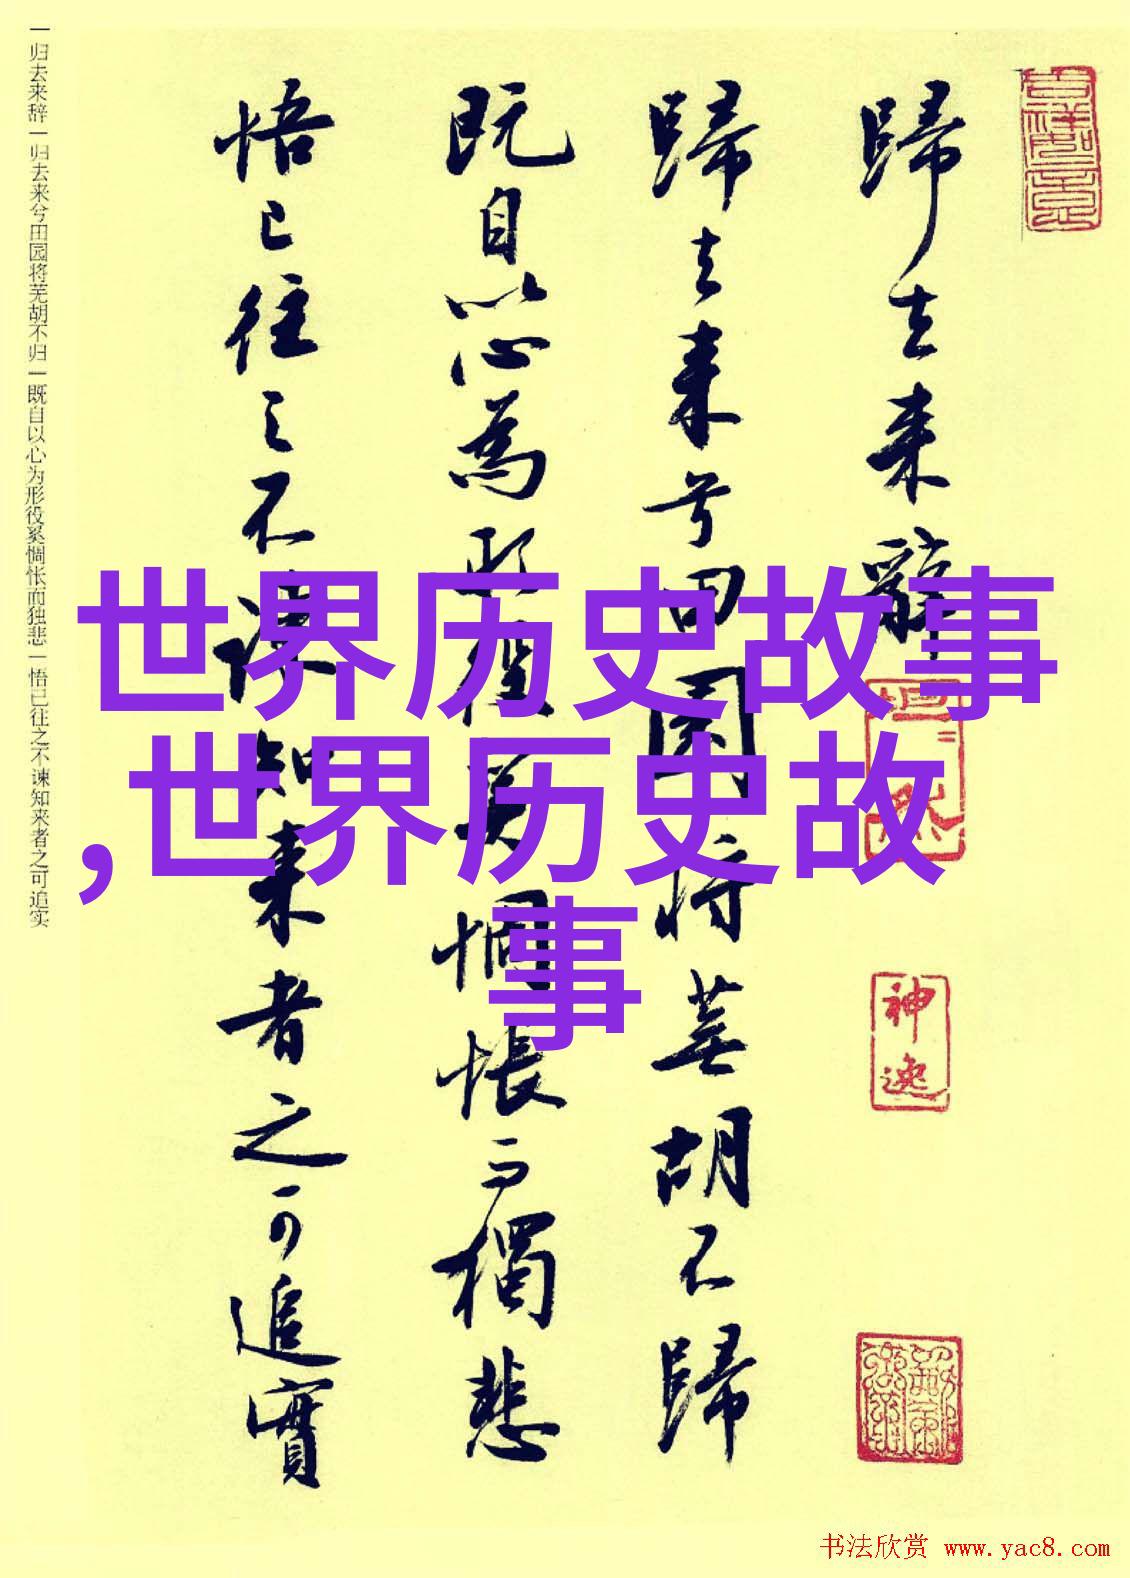 歸去来辭
歸去来兮田園将蕪胡不歸
既自以心為形役奚惆悵而獨悲
悟已往之不諫知来者之可追實
神逸
一归去来辞一归去来兮田园将芜胡不归一既自以心为形役奚惆怅而独悲一悟已往之不谏知来者之可追实
世界历史故事
,世界历史故
事
书法欣赏 www.yac8.com